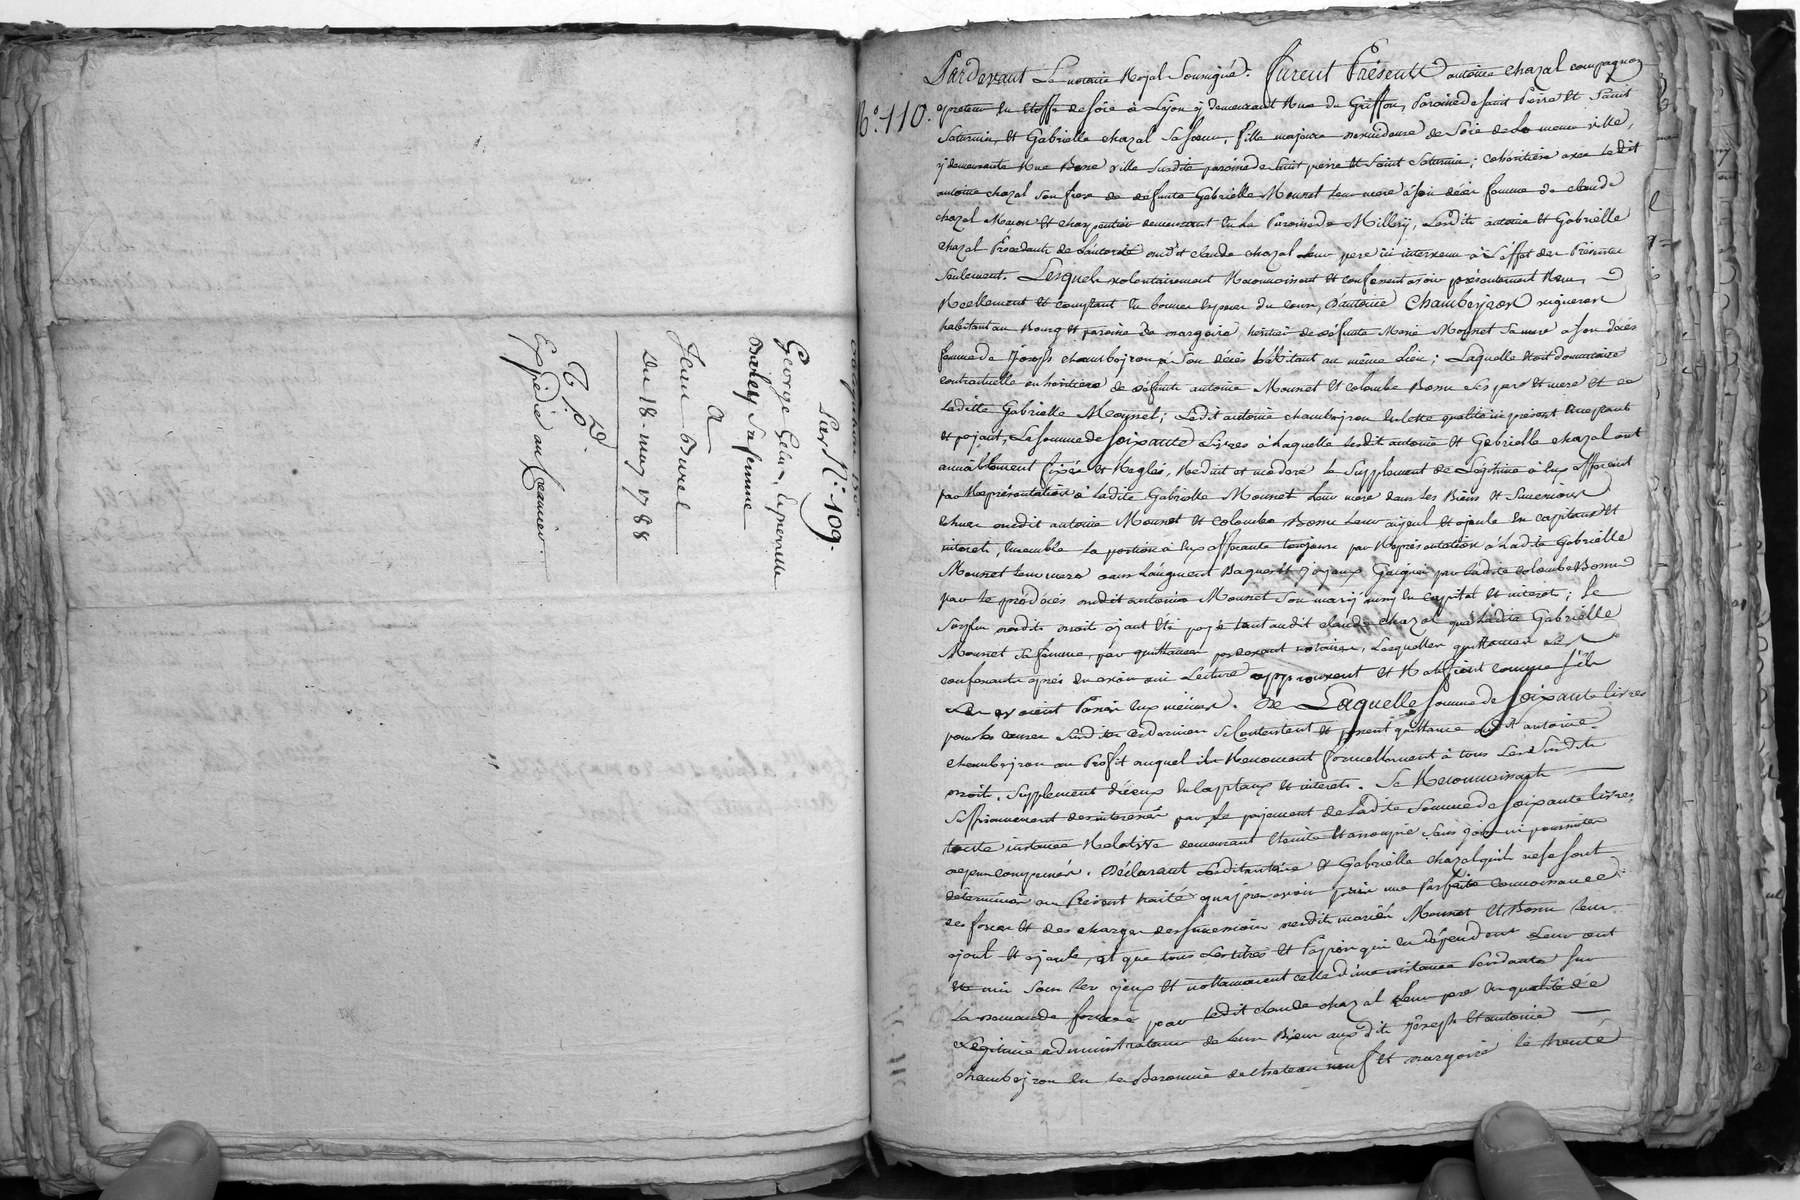 Lus N.° 109.
George Gelin, Eprenelle
Burley sa femme
a
Jean Burel
Du 18 may 1788
Expedié au Cearrier
N.° 110.
Pardevant Le notaire Royal Soussigné. furent Présents antoine chazal compagnon
apreteur en etoffe de soie à Lyon y demeurant Rue du Griffon, Paroisse de saint Pierre et Saint
Saturnin, et Gabrielle chazal sa soeur, fille majeure devideuse de Soie de la meme ville,
y demeurante Rue Basse ville Susdite paroisse de Saint pierre et Saint Saturnin; cohéritiers avec ledit
antoine chazal son frere de défunte Gabrielle Mounet leur mere à son décès femme de claude
chazal Masson et charpentier demeurant en La Paroisse de Millery, Lesdits antoine et Gabrielle
chazal Procedants de L'autorité dudit claude chazal leur pere ici intervenu à L'effet des Présentes
seulement. Lesquels volontairement Reconnoissent et confessent avoir présentement Reçu,
Réellement et comptant en bonnes especes du cours, D'antoine Chambeyron vigneron
habitant au Bourg et paroisse de margoire, heritier de défunte Marie Mounet sa mere a son décès
femme de Joseph chambeyron a son décès habitant au même Lieu; Laquelle étoit donnataire
contractuelle ou héritiere de défunts antoine Mounet et colombe Bonu ses pere et mere et de
Ladite Gabrielle Mounet; Ledit antoine chambeyron en cette qualité ici présent acceptant
et payant, La somme de soixante Livres à Laquelle lesdits antoine et Gabrielle chazal ont
amiablement fixée et Reglée, Reduit et modéré le Supplement de Légitime à eux afferent
par Représentation de Ladite Gabrielle Mounet Leur mere dans les Biens et Successions
dudit antoine Mounet et colombe Bonu leurs ayeul et ayeule en capitaux et
interets, Ensemble La portion à eux afferante toujours par Représentation de Ladite Gabrielle
Mounet leur mere dans L'augment Bagues et Joyaux Gaignés par ladite colombe Bonu
par le prédécès dudit antoine Mounet son mary aussi en capital et interets; Le
Surplus desdits droits ayant été payé tant audit claude chazal qu'à Ladite Gabrielle
Mounet sa femme, par quittances pardevant notaires, Lesquelles quittances les
confessants après en avoir oui Lecture approuvent et Ratifient comme s'ils
Les avoient Passées eux mêmes. De Laquelle Somme de Soixante livres
pour les causes Susdites ces derniers se contentent et passent quittance audit antoine
chambeyron au Profit auquel ils Renoncent formellement à tous lesdits Susdits
droits, Supplement d'iceux en capitaux et interets. Se Reconnoissant
parfaitement désinteressés par le payement de Ladite Somme de Soixante livres,
toute instance Relative demeurant éteinte et assoupie sans qu'on ni poursuites
depens compensés. Déclarant Lesdits antoine et Gabrielle chazal qu'ils ne se sont
déterminés au Présent traité qu'apres avoir pris une Parfaite connoissance
des forces et des charges des successions desdits mariés Mounet et Bonu leurs
ayeul et ayeule, et que tous Les titres et Papiers qui en dépendent Leur ont
été mis sous les yeux et nottamment celle d'une instance Pendante sur
La demande formée par ledit claude chazal leur pere en qualité de
Légitime administrateur de leurs Biens auxdits Joseph et antoine
chambeyron en la Baronnie de chateau neuf et dargoire le trente